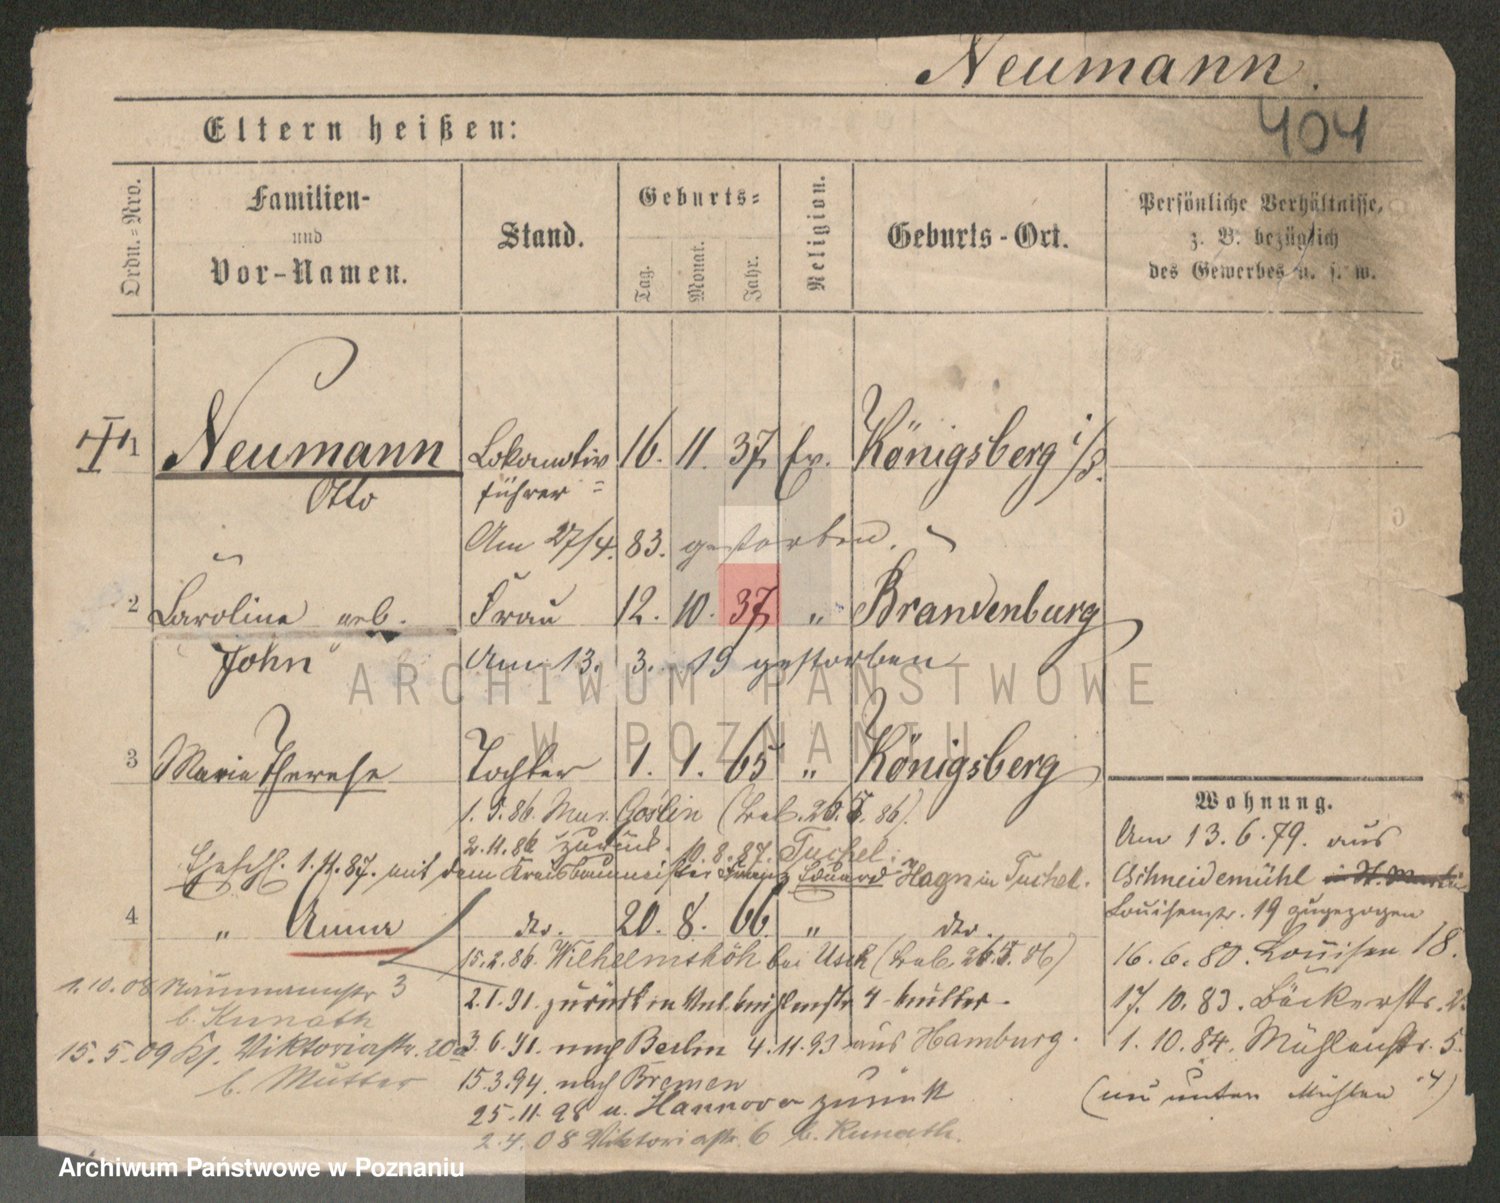 Neumann.
404
Eltern heißen:
Ordn.-Nro.
Familien-
und
Vor-Namen.
Stand.
Geburts-
Tag.
Monat.
Jahr.
Religion.
Geburts-Ort.
Persönliche Verhältnisse,
z. B. bezüglich
des Gewerbes u. s. w.
1 Neumann Lokomotiv 16. 11. 37 Ev. Königsberg
Otto führer
Am 27/4. 83. gestorben.
2 Caroline geb. Frau 12. 10. 37 " Brandenburg
John Am 13. 3. 19 gestorben
3 Marie Therese Tochter 1. 1. 65 " Königsberg
1. 5. 86 Goslin
2.11.86 zurück. 10.8.87. Tuchel.
Eheschl. 1.11.87. mit dem Kreisbaumeister Franz Eduard Hagn in Tuchel.
4 " Anna dto. 20. 8. 66. " dto.
15.2.86. Wilhelmshöh bei Usch
2.1.91. zurück
3.6.91. nach Berlin 4.11.93 aus Hamburg.
15.3.94. nach Bremen
25.11.98 v. Hannover zurück
2.4.08 Viktoriastr. 6 b. Kunath.
1.10.08 Naumannstr 3
b. Kunath
15.5.09 Viktoriastr. 20a
b. Mutter
Wohnung.
Am 13.6.79. aus
Schneidemühl
Louisenstr. 19 zugezogen
16.6.80. Louisen 18.
17.10.83. Bäckerstr.
1.10.84. Mühlenstr. 5.
ARCHIWUM PAŃSTWOWE
W POZNANIU
Archiwum Państwowe w Poznaniu